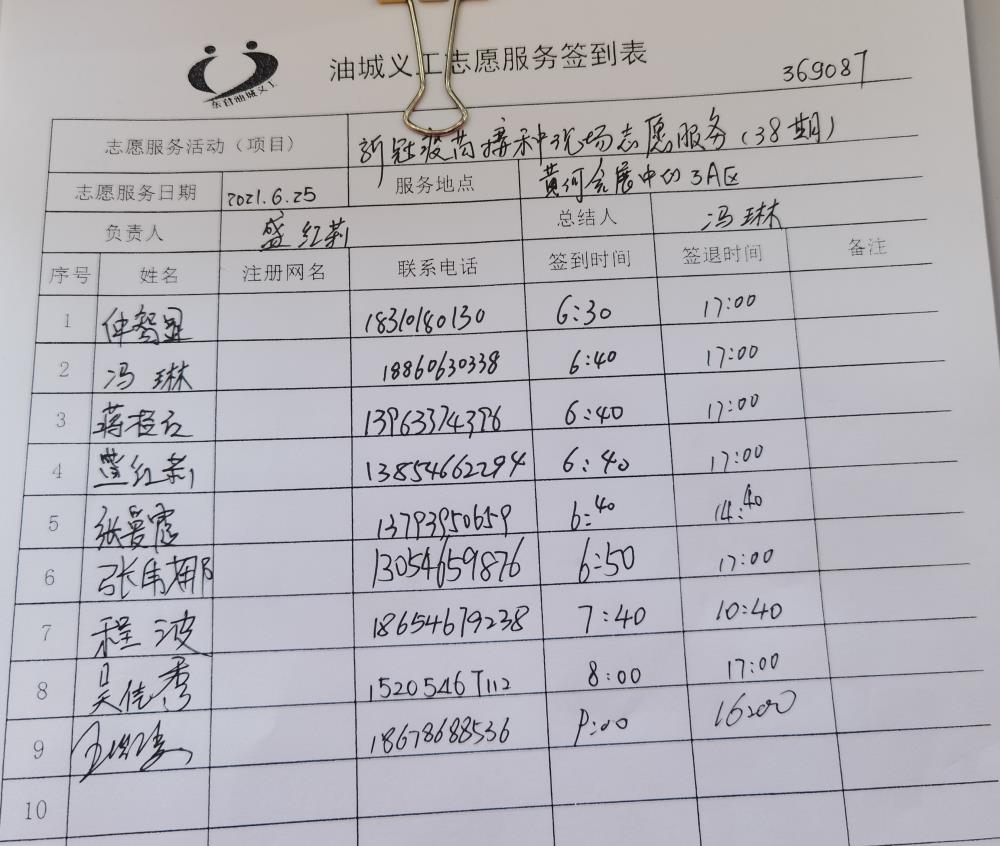 东营油城义工
油城义工志愿服务签到表
369087
志愿服务活动（项目） 新冠疫苗接种现场志愿服务（38期）
志愿服务日期 2021.6.25 服务地点 黄河会展中心3A区
负责人 盛红莉 总结人 冯琳
序号 姓名 注册网名 联系电话 签到时间 签退时间 备注
1 仲智显 18310180130 6:30 17:00
2 冯琳 18860630338 6:40 17:00
3 13963374396 6:40 17:00
4 盛红莉 13854662294 6:40 17:00
5 张曼霞 13793950659 6:40 14:40
6 张伟娜 13054659876 6:50 17:00
7 程波 18654679238 7:40 10:40
8 吴佳秀 15205467112 8:00 17:00
9 18678688536 9:00 16:00
10